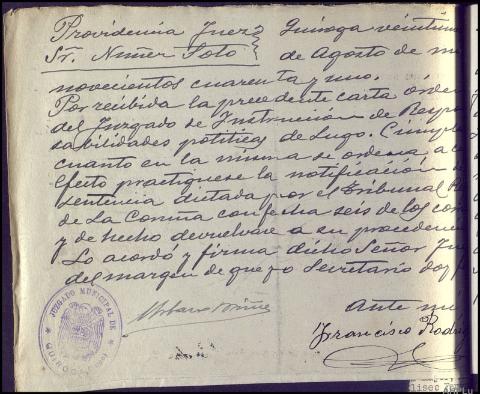 Providencia Juez Quiroga veintiun
Sr. Nuñez Soto de Agosto de mi
novecientos cuarenta y uno.
Por recibida la precedente carta orden
del Juzgado de Instrucción de Respon
sabilidades políticas de Lugo. Cumplas
cuanto en la misma se ordena, a cu
efecto practiquese la notificación de
sentencia dictada por el Tribunal Re
de La Coruña con fecha seis de los cor
y de hecho devuelvase a su proceden
Lo acordó y firma dicho Señor Jue
del margen de que yo Secretario doy fe
Ante mi
Francisco Rodri
JUZGADO MUNICIPAL DE
QUIROGA